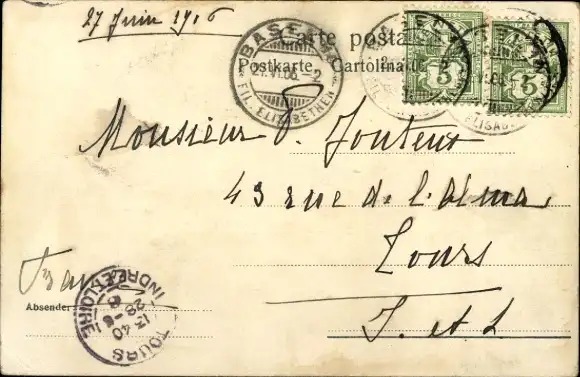 27 Juin 1906
Carte postale
Postkarte. Cartolina
BASEL
27.VI.06.-2
FIL. ELISABETHEN
5 5
Monsieur J. Fonteux
43 rue de l'Alma
Tours
I. et L
France
Absender
TOURS
13 40
28 -6
INDRE-ET-LOIRE